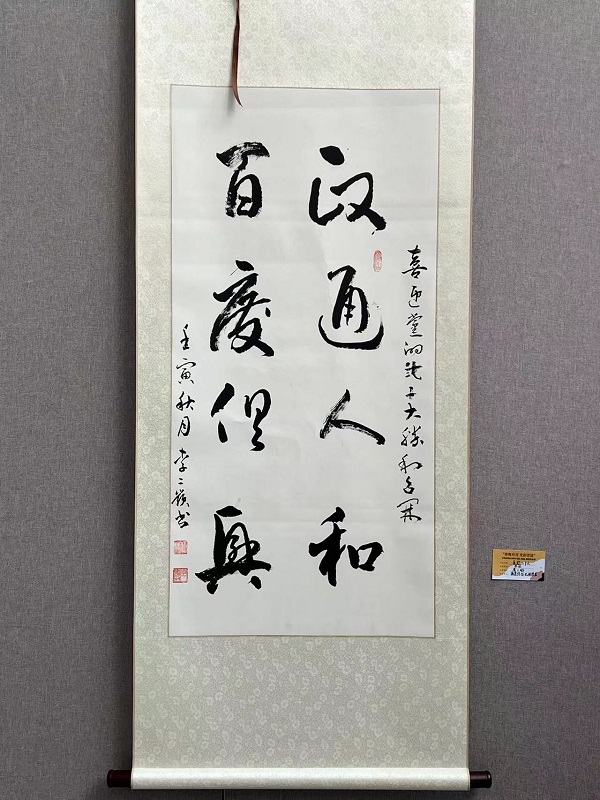 喜迎党的二十大胜利召开
政通人和
百度俱興
壬寅秋月李二嶺书